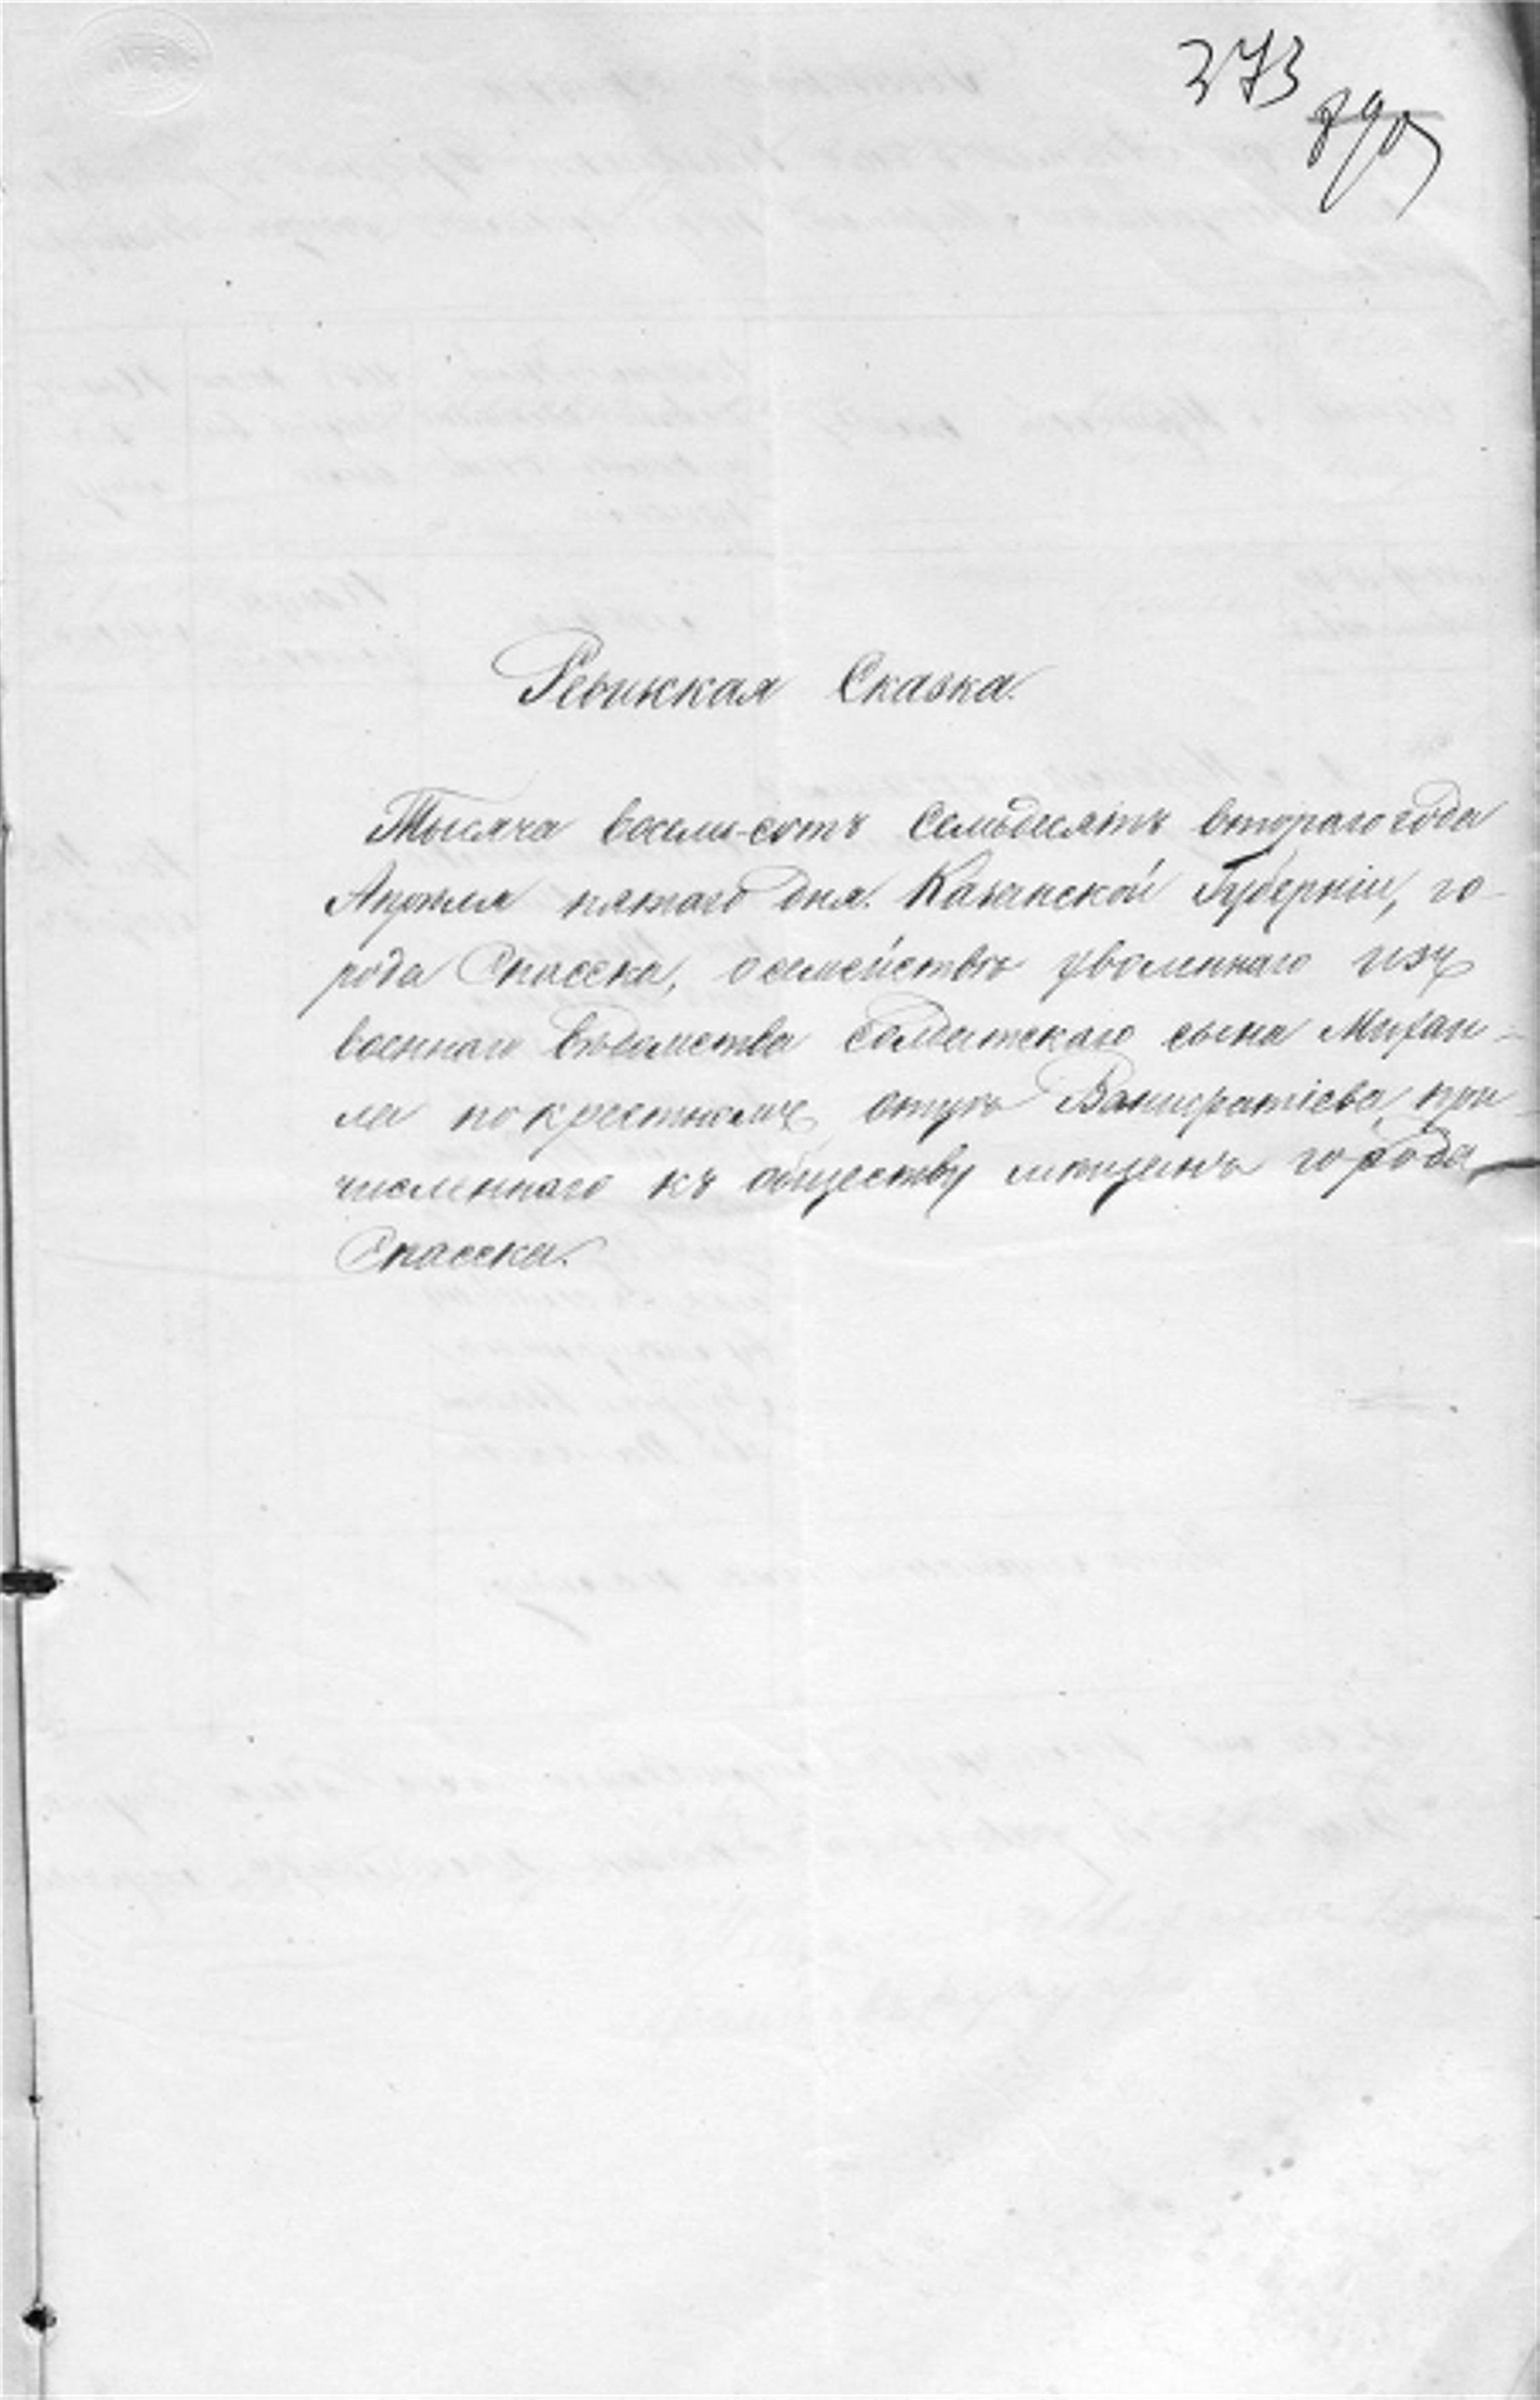 373
890
Ревижкая Сказка.
Тысяча восемь-сотъ Семьдесятъ втораго года
Апрѣля пятаго дня. Казанской Губерніи, го-
рода Спасска, о семействѣ уволеннаго изъ
военнаго вѣдомства солдатскаго сына Михаи-
ла по крестному отцу при-
численнаго къ обществу мѣщанъ города
Спасска.